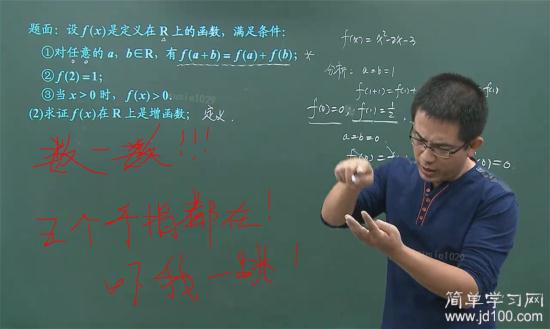 题面：设 f(x)是定义在 R 上的函数，满足条件：
①对任意的 a，b∈R，有 f(a+b)=f(a)+f(b)；*
②f(2)=1；
③当 x＞0 时，f(x)＞0.
(2)求证 f(x)在 R 上是增函数； 定义
f(x)=x²-2x-3
分析：a=b=1
f(1+1)=f(1)+f(1)
f(0)=0 f(1)=1/2，
a=b=0
数一数!!!
五个手指都在!
吓我一跳!
简单学习网
www.jd100.com